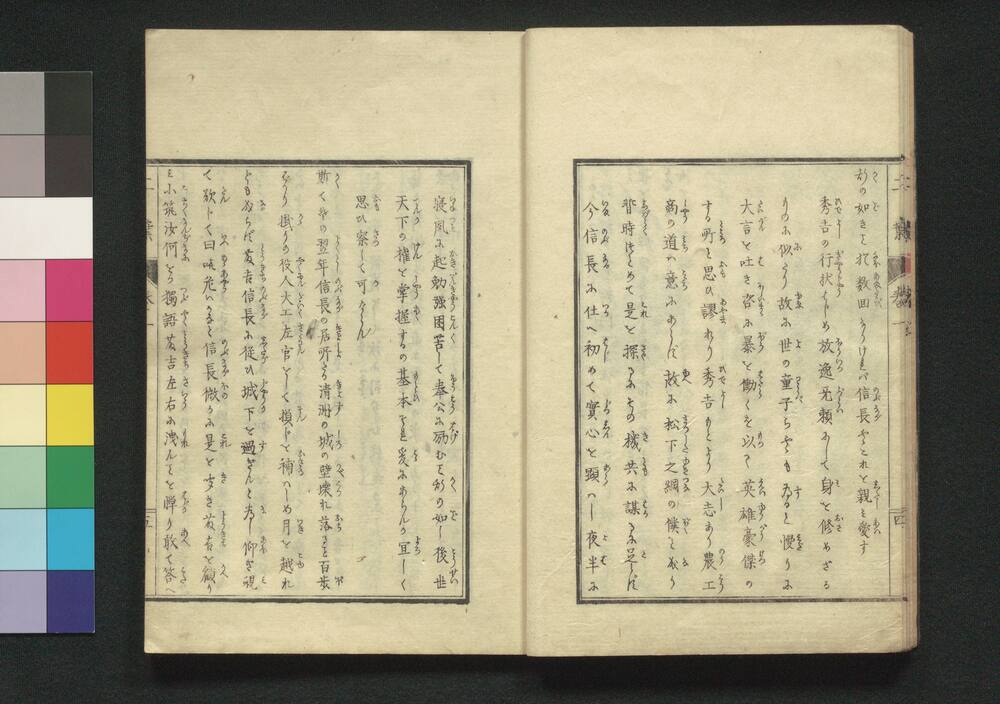 の如きこと数回ありければ信長もこれと親み愛す
秀吉の行状はじめ放逸無頼にして身を修めざる
りのに似たり故に世の童子らすらも為ると慢りに
大言を吐き咨に暴を働くを以て英雄豪傑の
する所と思ひ謬れり秀吉もとより大志あり農工
商の道は意にあらず故に松下之綱の僕となり
時はじめて是を探るにその機共に謀るに足らず
今信長に仕へ初めて實心を顕はし夜半に
寝夙に起勤強困苦して奉公に励むこと斯の如し後世
天下の権を掌握するの基本それ爰にあらんか宜しく
思ひ察しく可くらん
斯くその翌年信長の居所なる清洲の城の壁壊れ落ること百歩
ばかり掛りの役人大工左官をして損じを補はしめ月を越れ
ども成らず藤吉信長に従ひ城下を過ぎんと為し仰ぎ視
て歎じて曰吁危いかなと信長微に是を聞き藤吉を顧り
小筑汝何をか獨語藤吉左右に洩んことを憚り敢て答へ